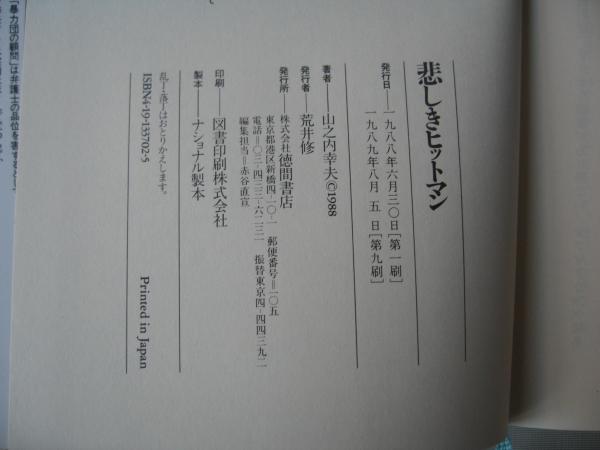 悲しきヒットマン
発行日──一九八八年六月三〇日[第一刷]
一九八九年八月 五 日[第九刷]
著者──山之内幸夫©1988
発行者──荒井修
発行所──株式会社徳間書店
東京都港区新橋四-一〇-一 郵便番号＝一〇五
電話＝〇三-四三三-六二三一 振替東京四-四四三九二
編集担当＝赤谷直宣
印刷──図書印刷株式会社
製本──ナショナル製本
乱丁・落丁はおとりかえします。
ISBN4-19-133702-5
Printed in Japan
「暴力団の顧問」は弁護士の品位を害する